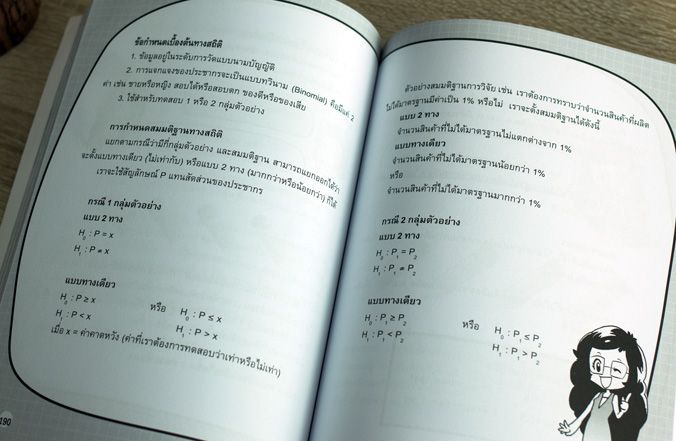 ข้อกำหนดเบื้องต้นทางสถิติ
1. ข้อมูลอยู่ในระดับการวัดแบบนามบัญญัติ
2. การแจกแจงของประชากรจะเป็นแบบทวินาม (Binomial) คือมีแค่ 2
ค่า เช่น ชายหรือหญิง สอบได้หรือสอบตก ของดีหรือของเสีย
3. ใช้สำหรับทดสอบ 1 หรือ 2 กลุ่มตัวอย่าง
การกำหนดสมมติฐานทางสถิติ
แยกตามกรณีว่ามีกี่กลุ่มตัวอย่าง และสมมติฐาน สามารถแยกออกได้ว่า
จะตั้งแบบทางเดียว (ไม่เท่ากับ) หรือแบบ 2 ทาง (มากกว่าหรือน้อยกว่า) ก็ได้
เราจะใช้สัญลักษณ์ P แทนสัดส่วนของประชากร
กรณี 1 กลุ่มตัวอย่าง
แบบ 2 ทาง
H₀ : P = x
H₁ : P ≠ x
แบบทางเดียว
H₀ : P ≥ x หรือ H₀ : P ≤ x
H₁ : P < x H₁ : P > x
เมื่อ x = ค่าคาดหวัง (ค่าที่เราต้องการทดสอบว่าเท่าหรือไม่เท่า)
190
ตัวอย่างสมมติฐานการวิจัย เช่น เราต้องการทราบว่าจำนวนสินค้าที่ผลิต
ไม่ได้มาตรฐานมีค่าเป็น 1% หรือไม่ เราจะตั้งสมมติฐานได้ดังนี้
แบบ 2 ทาง
จำนวนสินค้าที่ไม่ได้มาตรฐานไม่แตกต่างจาก 1%
แบบทางเดียว
จำนวนสินค้าที่ไม่ได้มาตรฐานน้อยกว่า 1%
หรือ
จำนวนสินค้าที่ไม่ได้มาตรฐานมากกว่า 1%
กรณี 2 กลุ่มตัวอย่าง
แบบ 2 ทาง
H₀ : P₁ = P₂
H₁ : P₁ ≠ P₂
แบบทางเดียว
H₀ : P₁ ≥ P₂ หรือ H₀ : P₁ ≤ P₂
H₁ : P₁ < P₂ H₁ : P₁ > P₂